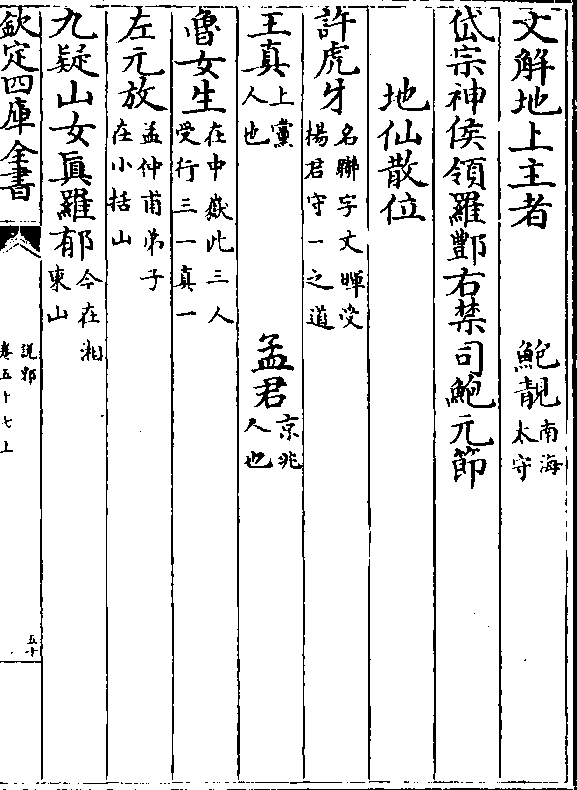 文解地上主者　鮑靚南海太守
岱宗神侯領羅酆右禁司鮑元節
地仙散位
許虎牙名聯字文暉受楊君守一之道
王真上黨人也　孟君京兆人也
魯女生在中嶽此三人受行三一真一
左元放孟仲甫弟子在小括山
九疑山女眞羅郁今在湘東山
欽定四庫全書　說郛卷五十七上　五十